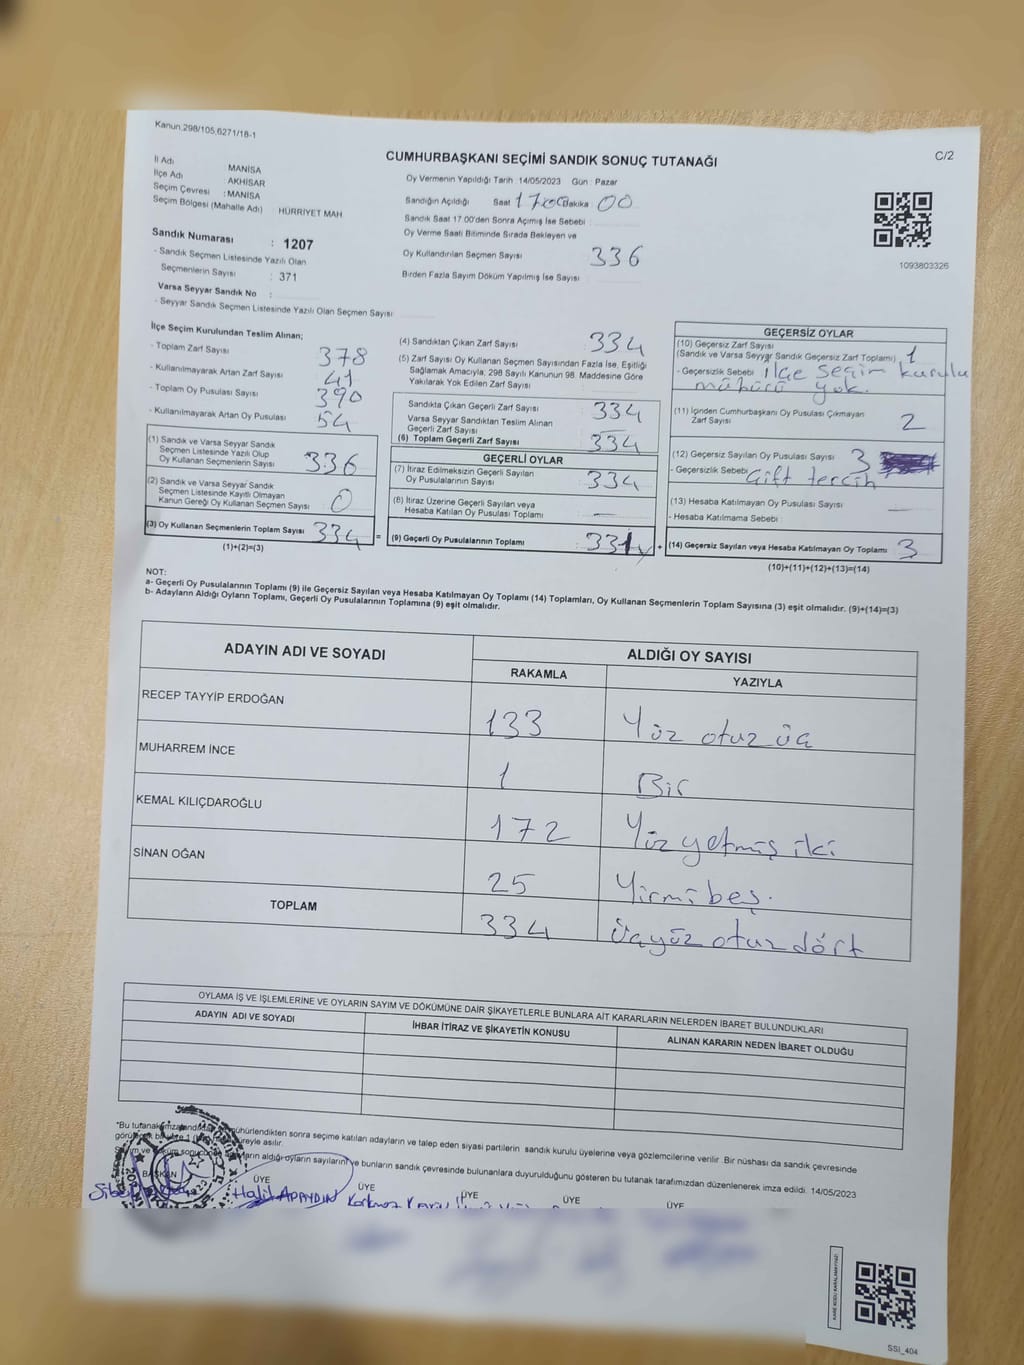 Kanun,298/105,6271/18-1
C/2
CUMHURBAŞKANI SEÇİMİ SANDIK SONUÇ TUTANAĞI
İl Adı MANİSA
İlçe Adı AKHİSAR
Seçim Çevresi : MANİSA
Seçim Bölgesi (Mahalle Adı) HÜRRİYET MAH
Sandık Numarası : 1207
- Sandık Seçmen Listesinde Yazılı Olan
Seçmenlerin Sayısı : 371
Varsa Seyyar Sandık No :
- Seyyar Sandık Seçmen Listesinde Yazılı Olan Seçmen Sayısı
Oy Vermenin Yapıldığı Tarih : 14/05/2023 Gün : Pazar
Sandığın Açıldığı Saat 1700 Dakika 00
Sandık Saat 17.00'den Sonra Açımış İse Sebebi :
Oy Verme Saati Bitiminde Sırada Bekleyen ve
Oy Kullandırılan Seçmen Sayısı 336
Birden Fazla Sayım Döküm Yapılmış İse Sayısı
1093803326
İlçe Seçim Kurulundan Teslim Alınan;
- Toplam Zarf Sayısı 378
- Kullanılmayarak Artan Zarf Sayısı 41
- Toplam Oy Pusulası Sayısı 390
- Kullanılmayarak Artan Oy Pusulası 54
(1) Sandık ve Varsa Seyyar Sandık
Seçmen Listesinde Yazılı Olup
Oy Kullanan Seçmenlerin Sayısı 336
(2) Sandık ve Varsa Seyyar Sandık
Seçmen Listesinde Kayıtlı Olmayan
Kanun Gereği Oy Kullanan Seçmen Sayısı 0
(3) Oy Kullanan Seçmenlerin Toplam Sayısı 334 =
(1)+(2)=(3)
(4) Sandıktan Çıkan Zarf Sayısı 334
(5) Zarf Sayısı Oy Kullanan Seçmen Sayısından Fazla İse, Eşitliği
Sağlamak Amacıyla; 298 Sayılı Kanunun 98. Maddesine Göre
Yakılarak Yok Edilen Zarf Sayısı
Sandıkta Çıkan Geçerli Zarf Sayısı 334
Varsa Seyyar Sandıktan Teslim Alınan
Geçerli Zarf Sayısı
(6) Toplam Geçerli Zarf Sayısı 334
GEÇERLİ OYLAR
(7) İtiraz Edilmeksizin Geçerli Sayılan
Oy Pusulalarının Sayısı 334
(8) İtiraz Üzerine Geçerli Sayılan veya
Hesaba Katılan Oy Pusulası Toplamı —
(9) Geçerli Oy Pusulalarının Toplamı +
GEÇERSİZ OYLAR
(10) Geçersiz Zarf Sayısı
(Sandık ve Varsa Seyyar Sandık Geçersiz Zarf Toplamı) 1
- Geçersizlik Sebebi : ilçe seçim kurulu
mühürü yok.
(11) İçinden Cumhurbaşkanı Oy Pusulası Çıkmayan
Zarf Sayısı 2
(12) Geçersiz Sayılan Oy Pusulası Sayısı 3
- Geçersizlik Sebebi Çift tercih
(13) Hesaba Katılmayan Oy Pusulası Sayısı —
- Hesaba Katılmama Sebebi :
(14) Geçersiz Sayılan veya Hesaba Katılmayan Oy Toplamı 3
(10)+(11)+(12)+(13)=(14)
NOT:
a- Geçerli Oy Pusulalarının Toplamı (9) ile Geçersiz Sayılan veya Hesaba Katılmayan Oy Toplamı (14) Toplamları, Oy Kullanan Seçmenlerin Toplam Sayısına (3) eşit olmalıdır. (9)+(14)=(3)
b- Adayların Aldığı Oyların Toplamı, Geçerli Oy Pusulalarının Toplamına (9) eşit olmalıdır.
ADAYIN ADI VE SOYADI ALDIĞI OY SAYISI
RAKAMLA YAZIYLA
RECEP TAYYİP ERDOĞAN 133 Yüz otuz üç
MUHARREM İNCE 1 Bir
KEMAL KILIÇDAROĞLU 172 Yüz yetmiş iki
SİNAN OĞAN 25 Yirmi beş.
TOPLAM 334 üçyüz otuz dört
OYLAMA İŞ VE İŞLEMLERİNE VE OYLARIN SAYIM VE DÖKÜMÜNE DAİR ŞİKAYETLERLE BUNLARA AİT KARARLARIN NELERDEN İBARET BULUNDUKLARI
ADAYIN ADI VE SOYADI İHBAR İTİRAZ VE ŞİKAYETİN KONUSU ALINAN KARARIN NEDEN İBARET OLDUĞU
*Bu tutanak mühürlendikten sonra seçime katılan adayların ve talep eden siyasi partilerin sandık kurulu üyelerine veya gözlemcilerine verilir. Bir nüshası da sandık çevresinde
süreyle asılır.
aldığı oyların sayılarını ve bunların sandık çevresinde bulunanlara duyurulduğunu gösteren bu tutanak tarafımızdan düzenlenerek imza edildi. 14/05/2023
BAŞKAN ÜYE ÜYE ÜYE ÜYE
Halil APAYDIN
SSI_404